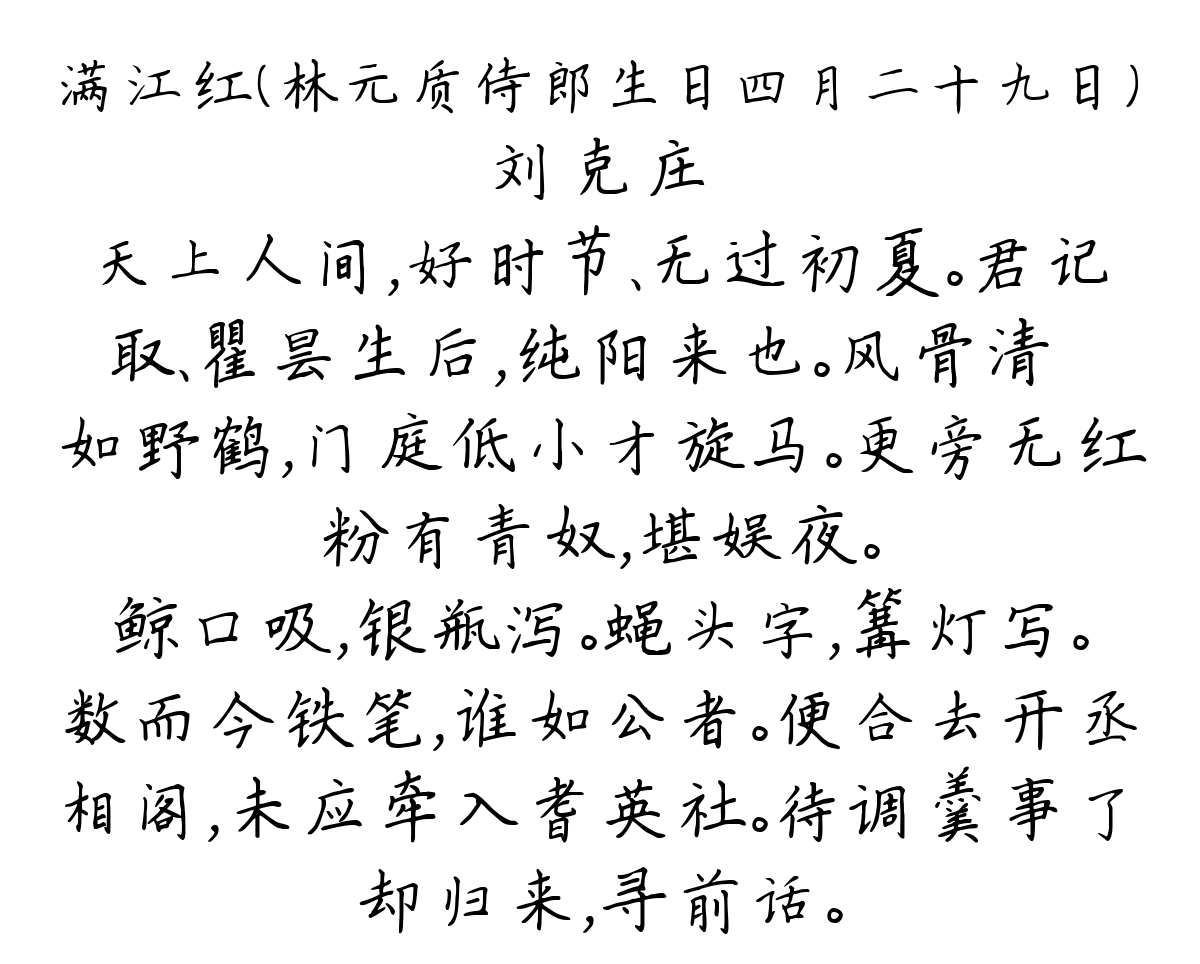 满江红(林元质侍郎生日四月二十九日)
刘克庄
天上人间,好时节、无过初夏。君记
取、瞿昙生后,纯阳来也。风骨清
如野鹤,门庭低小才旋马。更旁无红
粉有青奴,堪娱夜。
鲸口吸,银瓶泻。蝇头字,篝灯写。
数而今铁笔,谁如公者。便合去开丞
相阁,未应牵入耆英社。待调羹事了
却归来,寻前话。